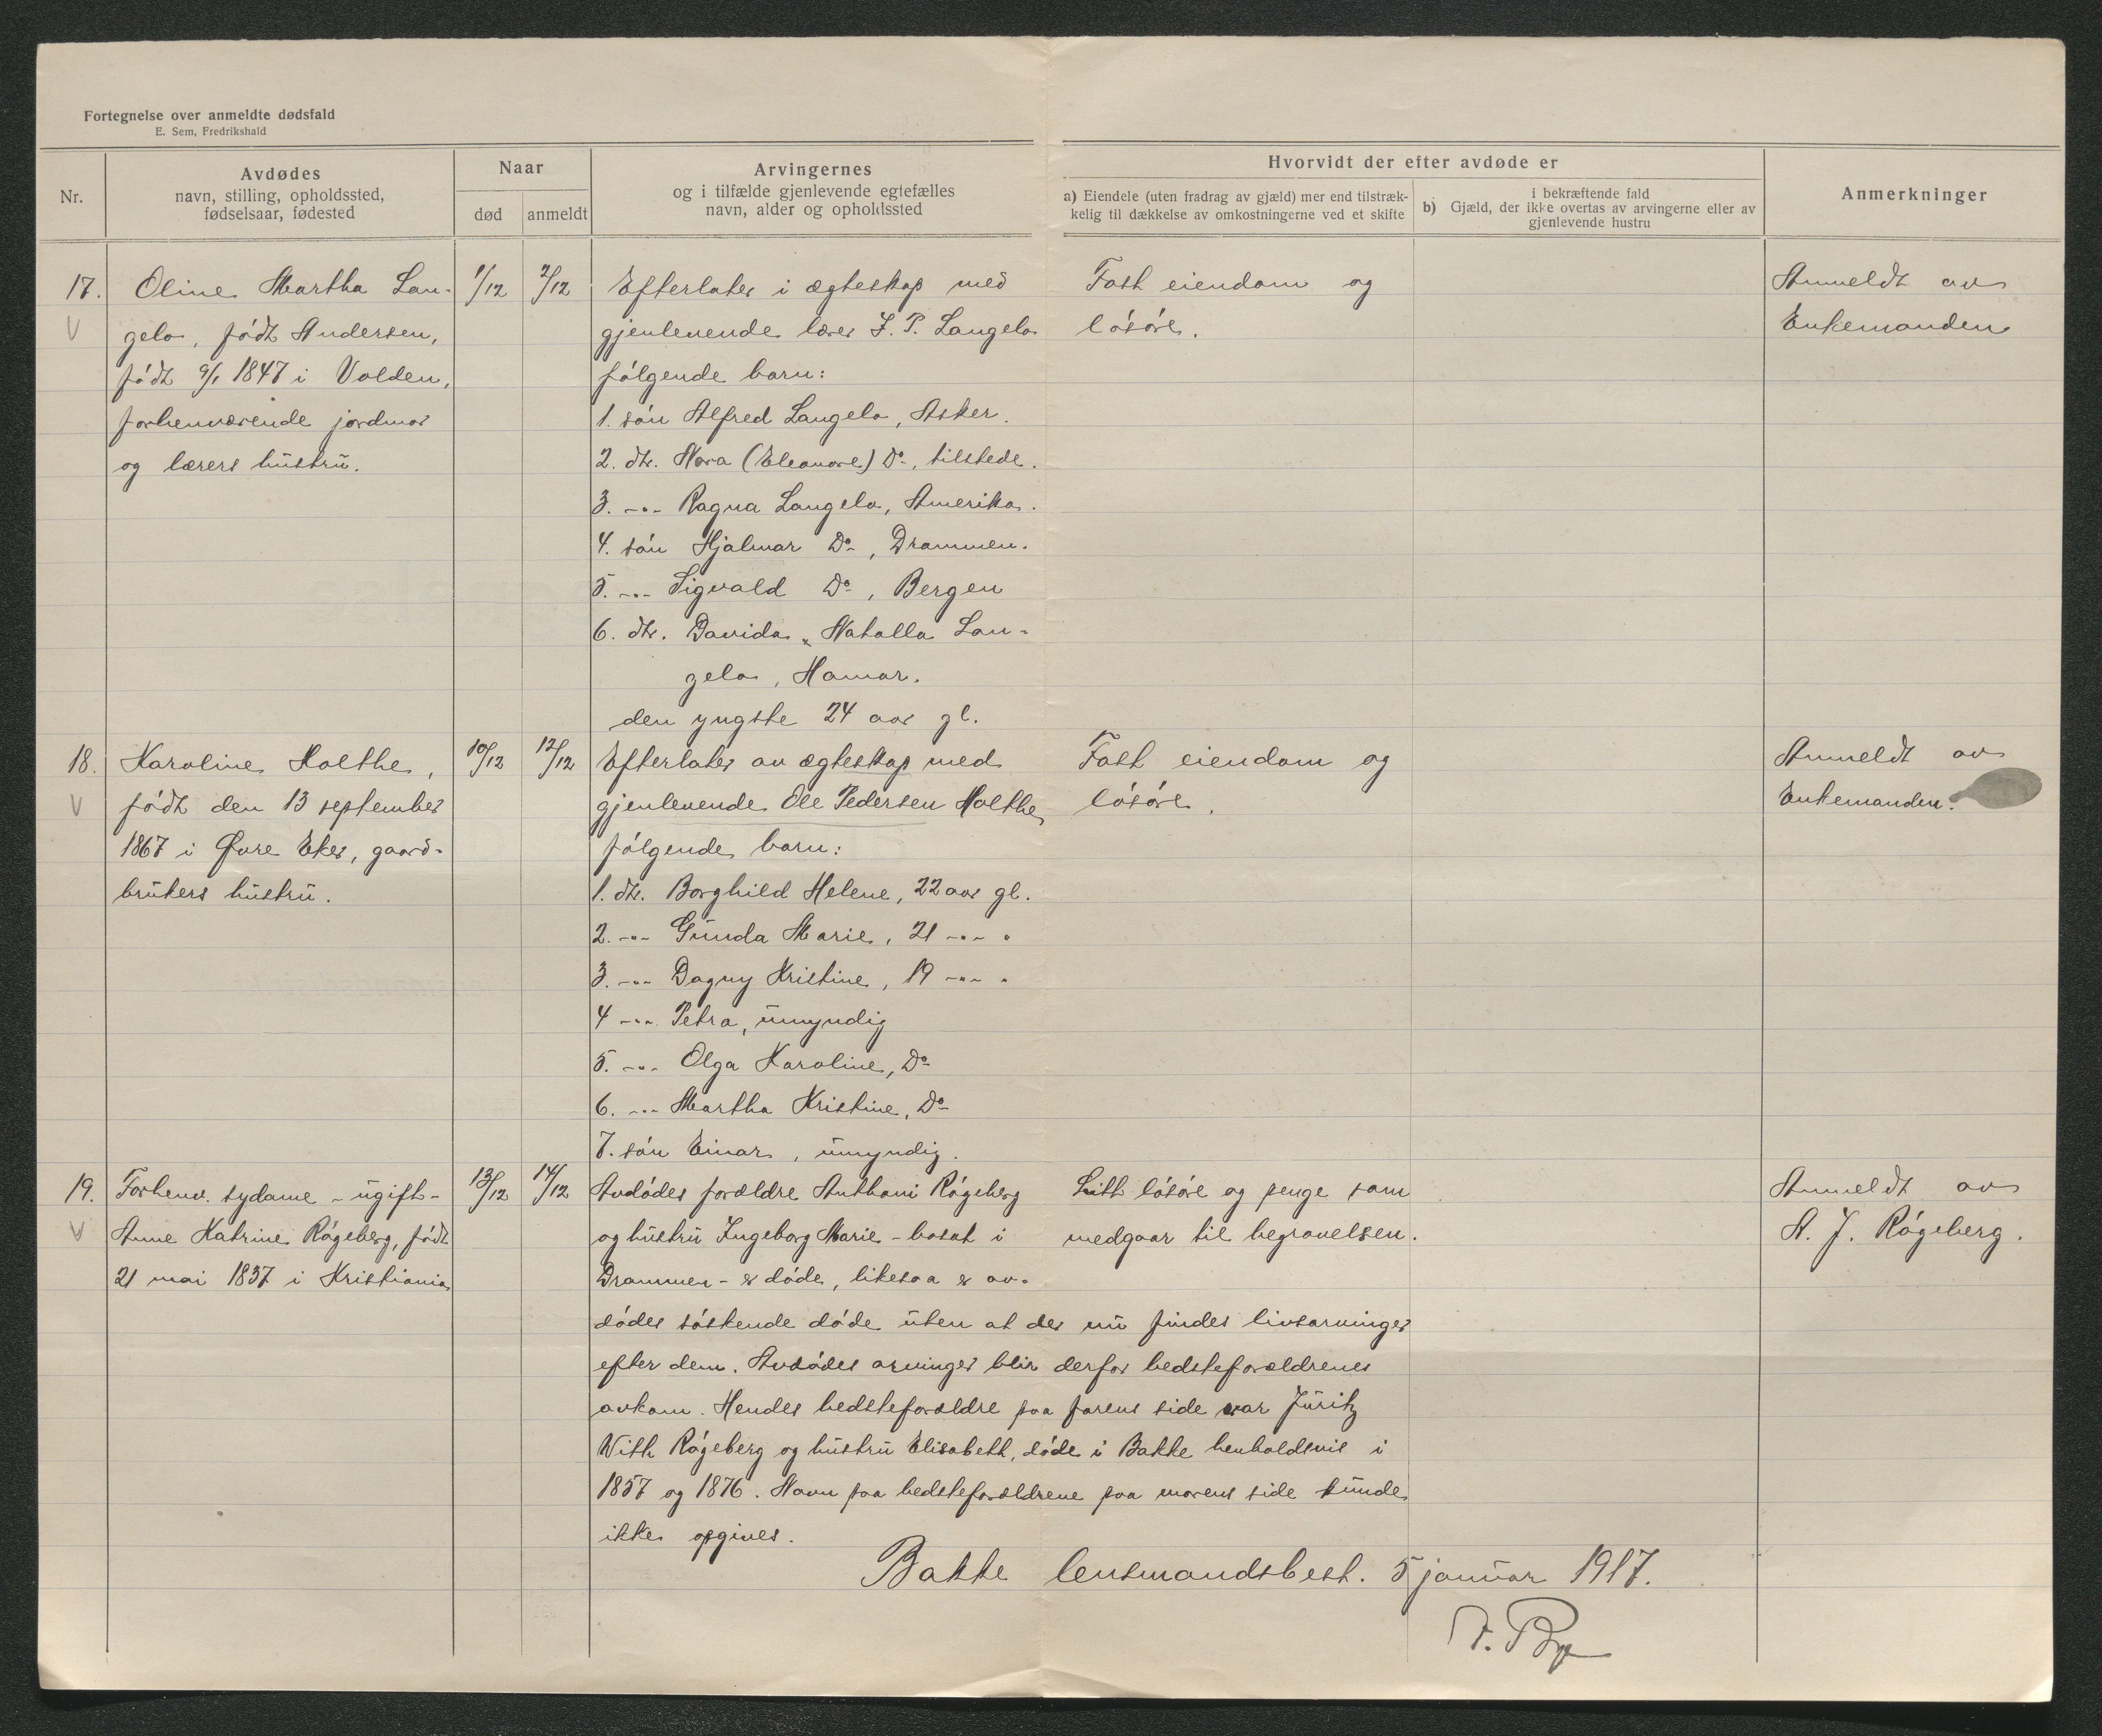 Fortegnelse over anmeldte dødsfald
E. Sem, Fredrikshald
Nr.
Avdødes
navn, stilling, opholdssted,
fødselsaar, fødested
Naar
død
anmeldt
Arvingernes
og i tilfælde gjenlevende egtefælles
navn, alder og opholdssted
Hvorvidt der efter avdøde er
a) Eiendele (uten fradrag av gjæld) mer end tilstræk-
kelig til dækkelse av omkostningerne ved et skifte
i bekræftende fald
b) Gjæld, der ikke overtas av arvingerne eller av
gjenlevende hustru
Anmerkninger
17.
Oline Martha Lan-
gelo, født Andersen,
født 9/1 1847 i Volden,
forhenværende jordmor
og lærers hustru.
1/12
2/12
Efterlater i ægteskap med
gjenlevende lærer J. P. Langelo
følgende barn:
1. søn Alfred Langelo, Asker.
2. dtr. Nora (Eleonore) Do, tilstede.
3. -"- Ragna Langelo, Amerika.
4. søn Hjalmar Do, Drammen.
5. -"- Sigvald Do, Bergen
6. dtr. Davida Natalla Lan-
gelo, Hamar.
den yngste 24 aar gl.
Fast eiendom og
løsøre.
Anmeldt av
Enkemanden
18.
Karoline Holthe,
født den 13 september
1867 i Øvre Eker, gaard-
brukers hustru.
10/12
12/12
Efterlater av ægteskap med
gjenlevende Ole Pedersen Holthe
følgende barn:
1. dtr. Borghild Helene, 22 aar gl.
2. -"- Gunda Marie, 21 -"- "
3. -"- Dagny Kristine, 19 -"- "
4 -"- Petra, umyndig
5. -"- Olga Karoline, Do
6. -"- Martha Kristine, Do
7. søn Einar, umyndig.
Fast eiendom og
løsøre.
Anmeldt av
Enkemanden.
19.
Forhenv. sydame - ugift -
Anne Katrine Røgeberg, født
21 mai 1837 i Kristiania
13/12
14/12
Avdødes forældre Anthoni Røgeberg
og hustru Ingeborg Marie - bosat i
Drammen - er døde, likesaa er av-
dødes søskende døde uten at der nu findes livsarvinger
efter dem. Avdødes arvinger blir derfor bedsteforældrenes
avkom. Hendes bedsteforældre paa farens side var Juritz
With Røgeberg og hustru Elisabeth, døde i Bakke henholdsvis i
1857 og 1876. Navn paa bedsteforældrene paa morens side kunde
ikke opgives.
Litt løsøre og penge som
medgaar til begravelsen.
Anmeldt av
A. J. Røgeberg.
Bakke lensmandsbest. 5 januar 1917.